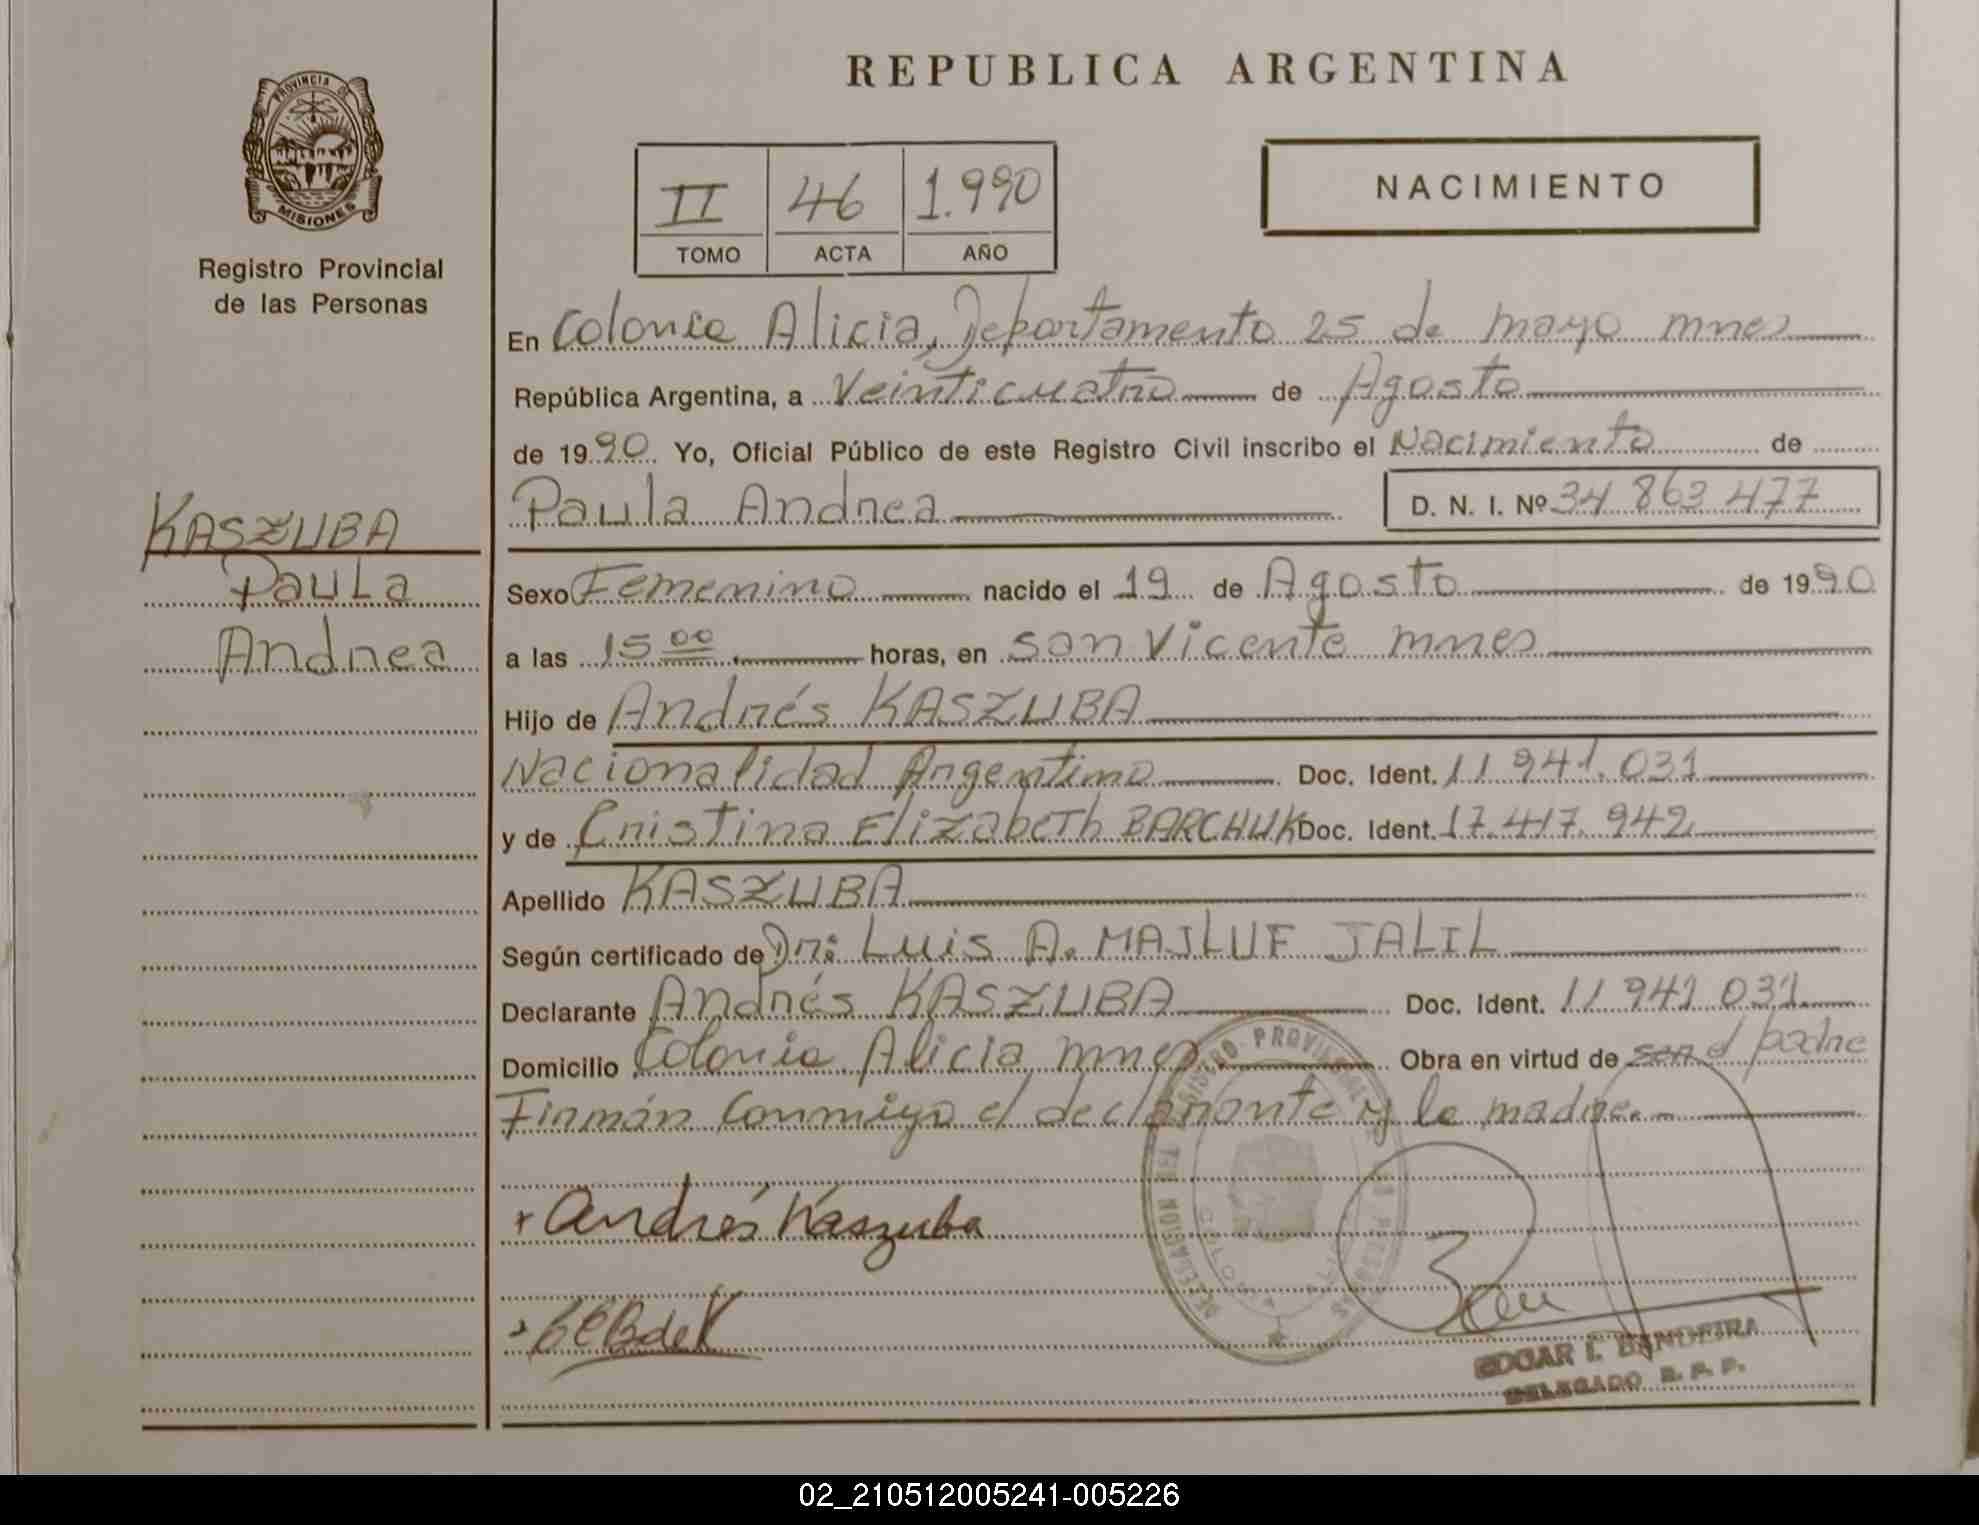 PROVINCIA DE
MISIONES
Registro Provincial
de las Personas
REPUBLICA ARGENTINA
II 46 1.990
TOMO ACTA AÑO
NACIMIENTO
En Colonia Alicia, Departamento 25 de mayo mnes
República Argentina, a Veinticuatro de Agosto
de 1990 Yo, Oficial Público de este Registro Civil inscribo el Nacimiento de
Paula Andrea D. N. I. Nº 34 863 477
KASZUBA
Paula
Andrea
Sexo Femenino nacido el 19 de Agosto de 1990
a las 15 00 horas, en san Vicente mnes
Hijo de Andrés KASZUBA
Nacionalidad Argentina Doc. Ident. 11 941.031
y de Cristina Elizabeth BARCHUK Doc. Ident. 17.417.942
Apellido KASZUBA
Según certificado de Dr: Luis A. MAJLUF JALIL
Declarante Andrés KASZUBA Doc. Ident. 11 941 031
Domicilio Colonia Alicia mnes Obra en virtud de ser el padre
Firmán conmigo el declarante y la madre.
Andrés Kaszuba
EDGAR I. BENDEIRA
DELEGADO R. P. P.
02_210512005241-005226